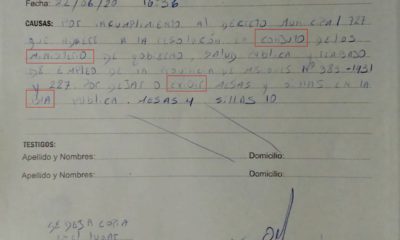 FECHA: 22/06/20 16:36
CAUSAS: POR INCUMPLIMIENTO AL DECRETO MUNICIPAL 727
QUE ADHIERE A LA RESOLUCION EN CONJUTO DE LOS
DE GOBIERNO, SALUD PUBLICA Y TRABAJO
DE EMPLEO DE LA PROVINCIA DE MISIONES Nº 383-1431
Y 287. POR DEJAR O MESAS Y SILLAS EN LA
VIA PUBLICA. MESAS Y SILLAS 10
TESTIGOS:
Apellido y Nombres: Domicilio:
Apellido y Nombres: Domicilio:
SE DEJA COPIA